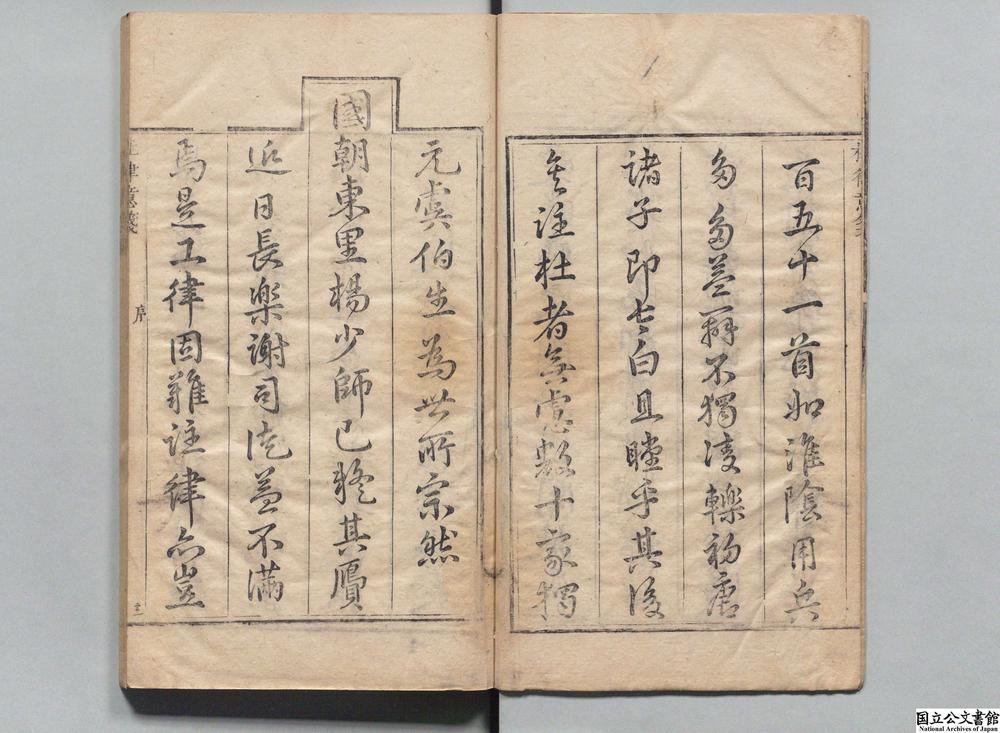 百五十一首如淮陰用兵
多多益辦不獨凌轢初唐
諸子即七白且瞠乎其後
矣註杜者無慮數十家獨
元虞伯生為世所宗然
國朝東里楊少師已疑其贋
近日長樂謝司流益不滿
焉是工律固難註律亦豈
杜律意箋
序
国立公文書館
National Archives of Japan